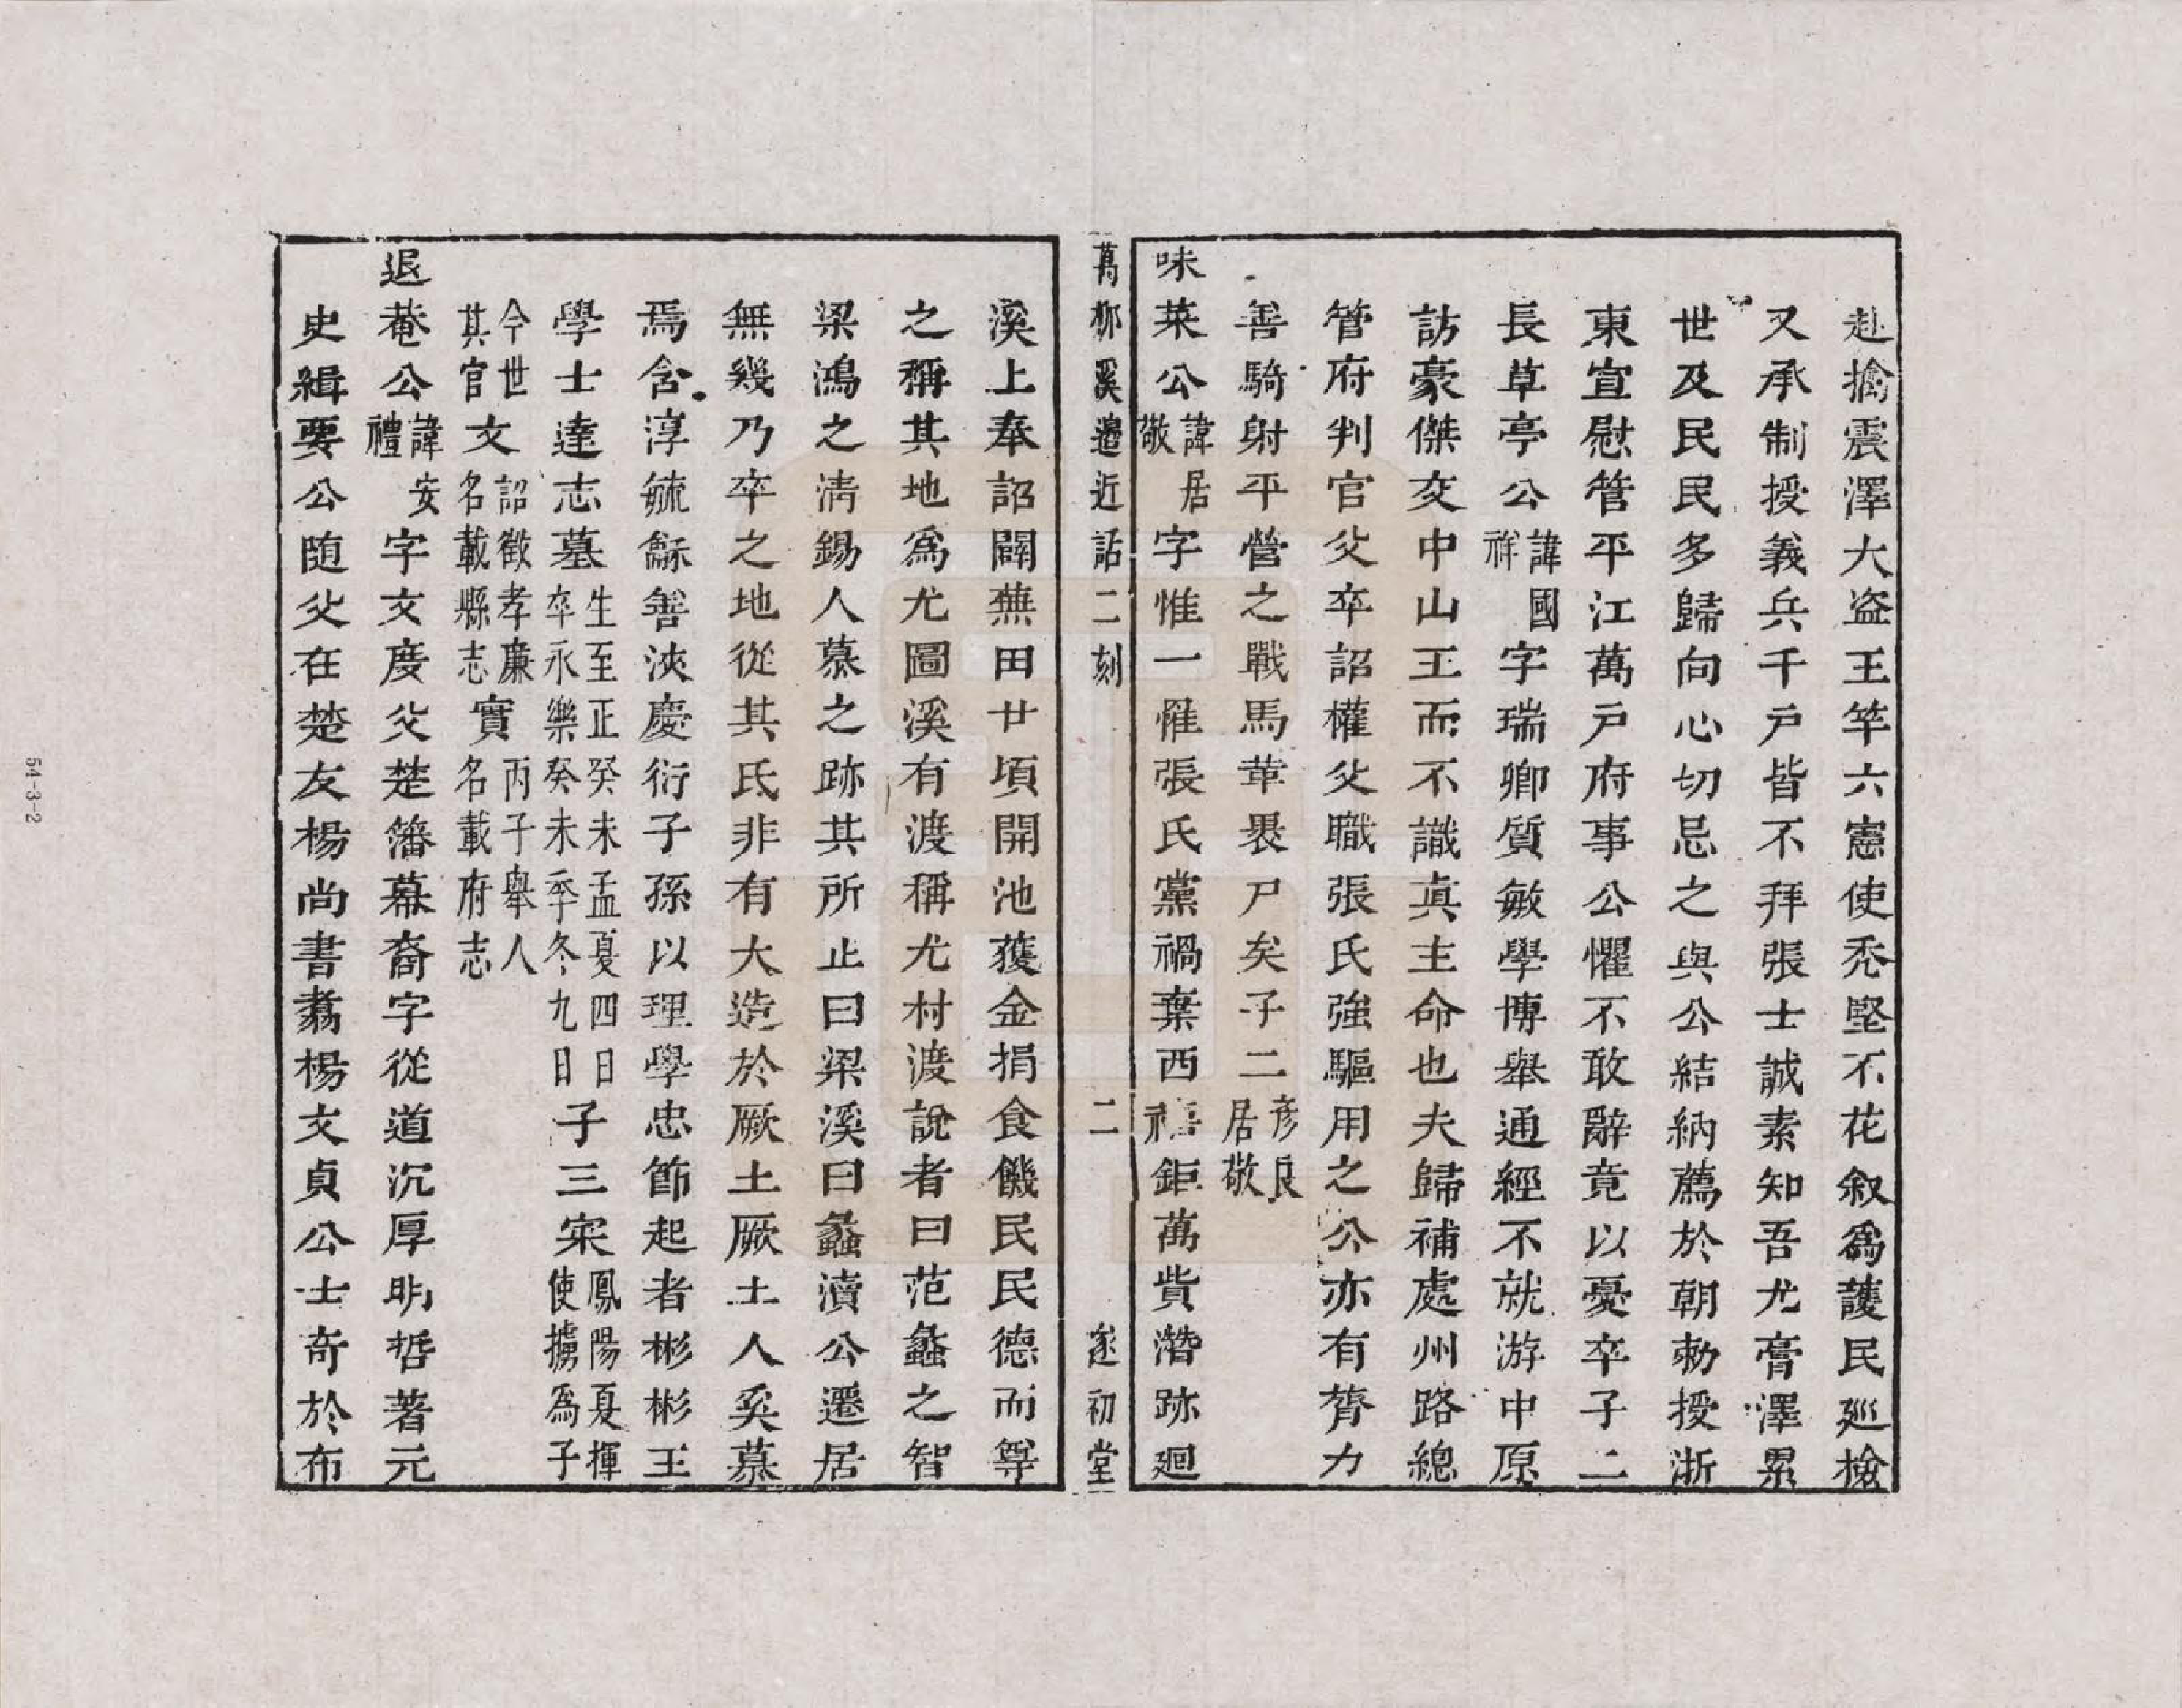 赴擒震澤大盗王竿六憲使禿堅不花叙爲䕶民廵檢
又承制授義兵千戸皆不拜張士誠素知吾尤膏澤累
世及民民多歸向心切忌之與公結納薦於朝勑授浙
東宣慰管平江萬戸府事公懼不敢辭竟以憂卒子二
長草亭公諱國祥字瑞卿質敏學博舉通經不就游中原
訪豪傑交中山王而不識真主命也夫歸補處州路總
管府判官父卒詔權父職張氏強驅用之公亦有膂力
善騎射平營之戰馬革褁尸矣子二彦良居敬
味菜公諱居敬字惟一罹張氏黨禍棄西禧鉅萬貲潛跡廻
萬柳溪邊近話二刻 二 遂初堂
溪上奉詔闢蕪田廿頃開池獲金捐食饑民民德而尊
之稱其地爲尤圖溪有渡稱尤村渡說者曰范蠡之智
梁鴻之清錫人慕之跡其所止曰梁溪曰蠡瀆公遷居
無幾乃卒之地從其氏非有大造於厥土厥土人奚慕
焉含淳毓龢善浹慶衍子孫以理學忠節起者彬彬王
學士達志墓生至正癸未孟夏四日卒永樂癸未季冬九日子三宋鳳陽夏揮使擄爲子
今世其官文詔徵孝廉名載縣志實丙子舉人名載府志
退菴公諱安禮字文度父楚籓幕裔字從道沉厚明哲著元
史緝要公随父在楚友楊尚書翥楊文貞公士奇於布